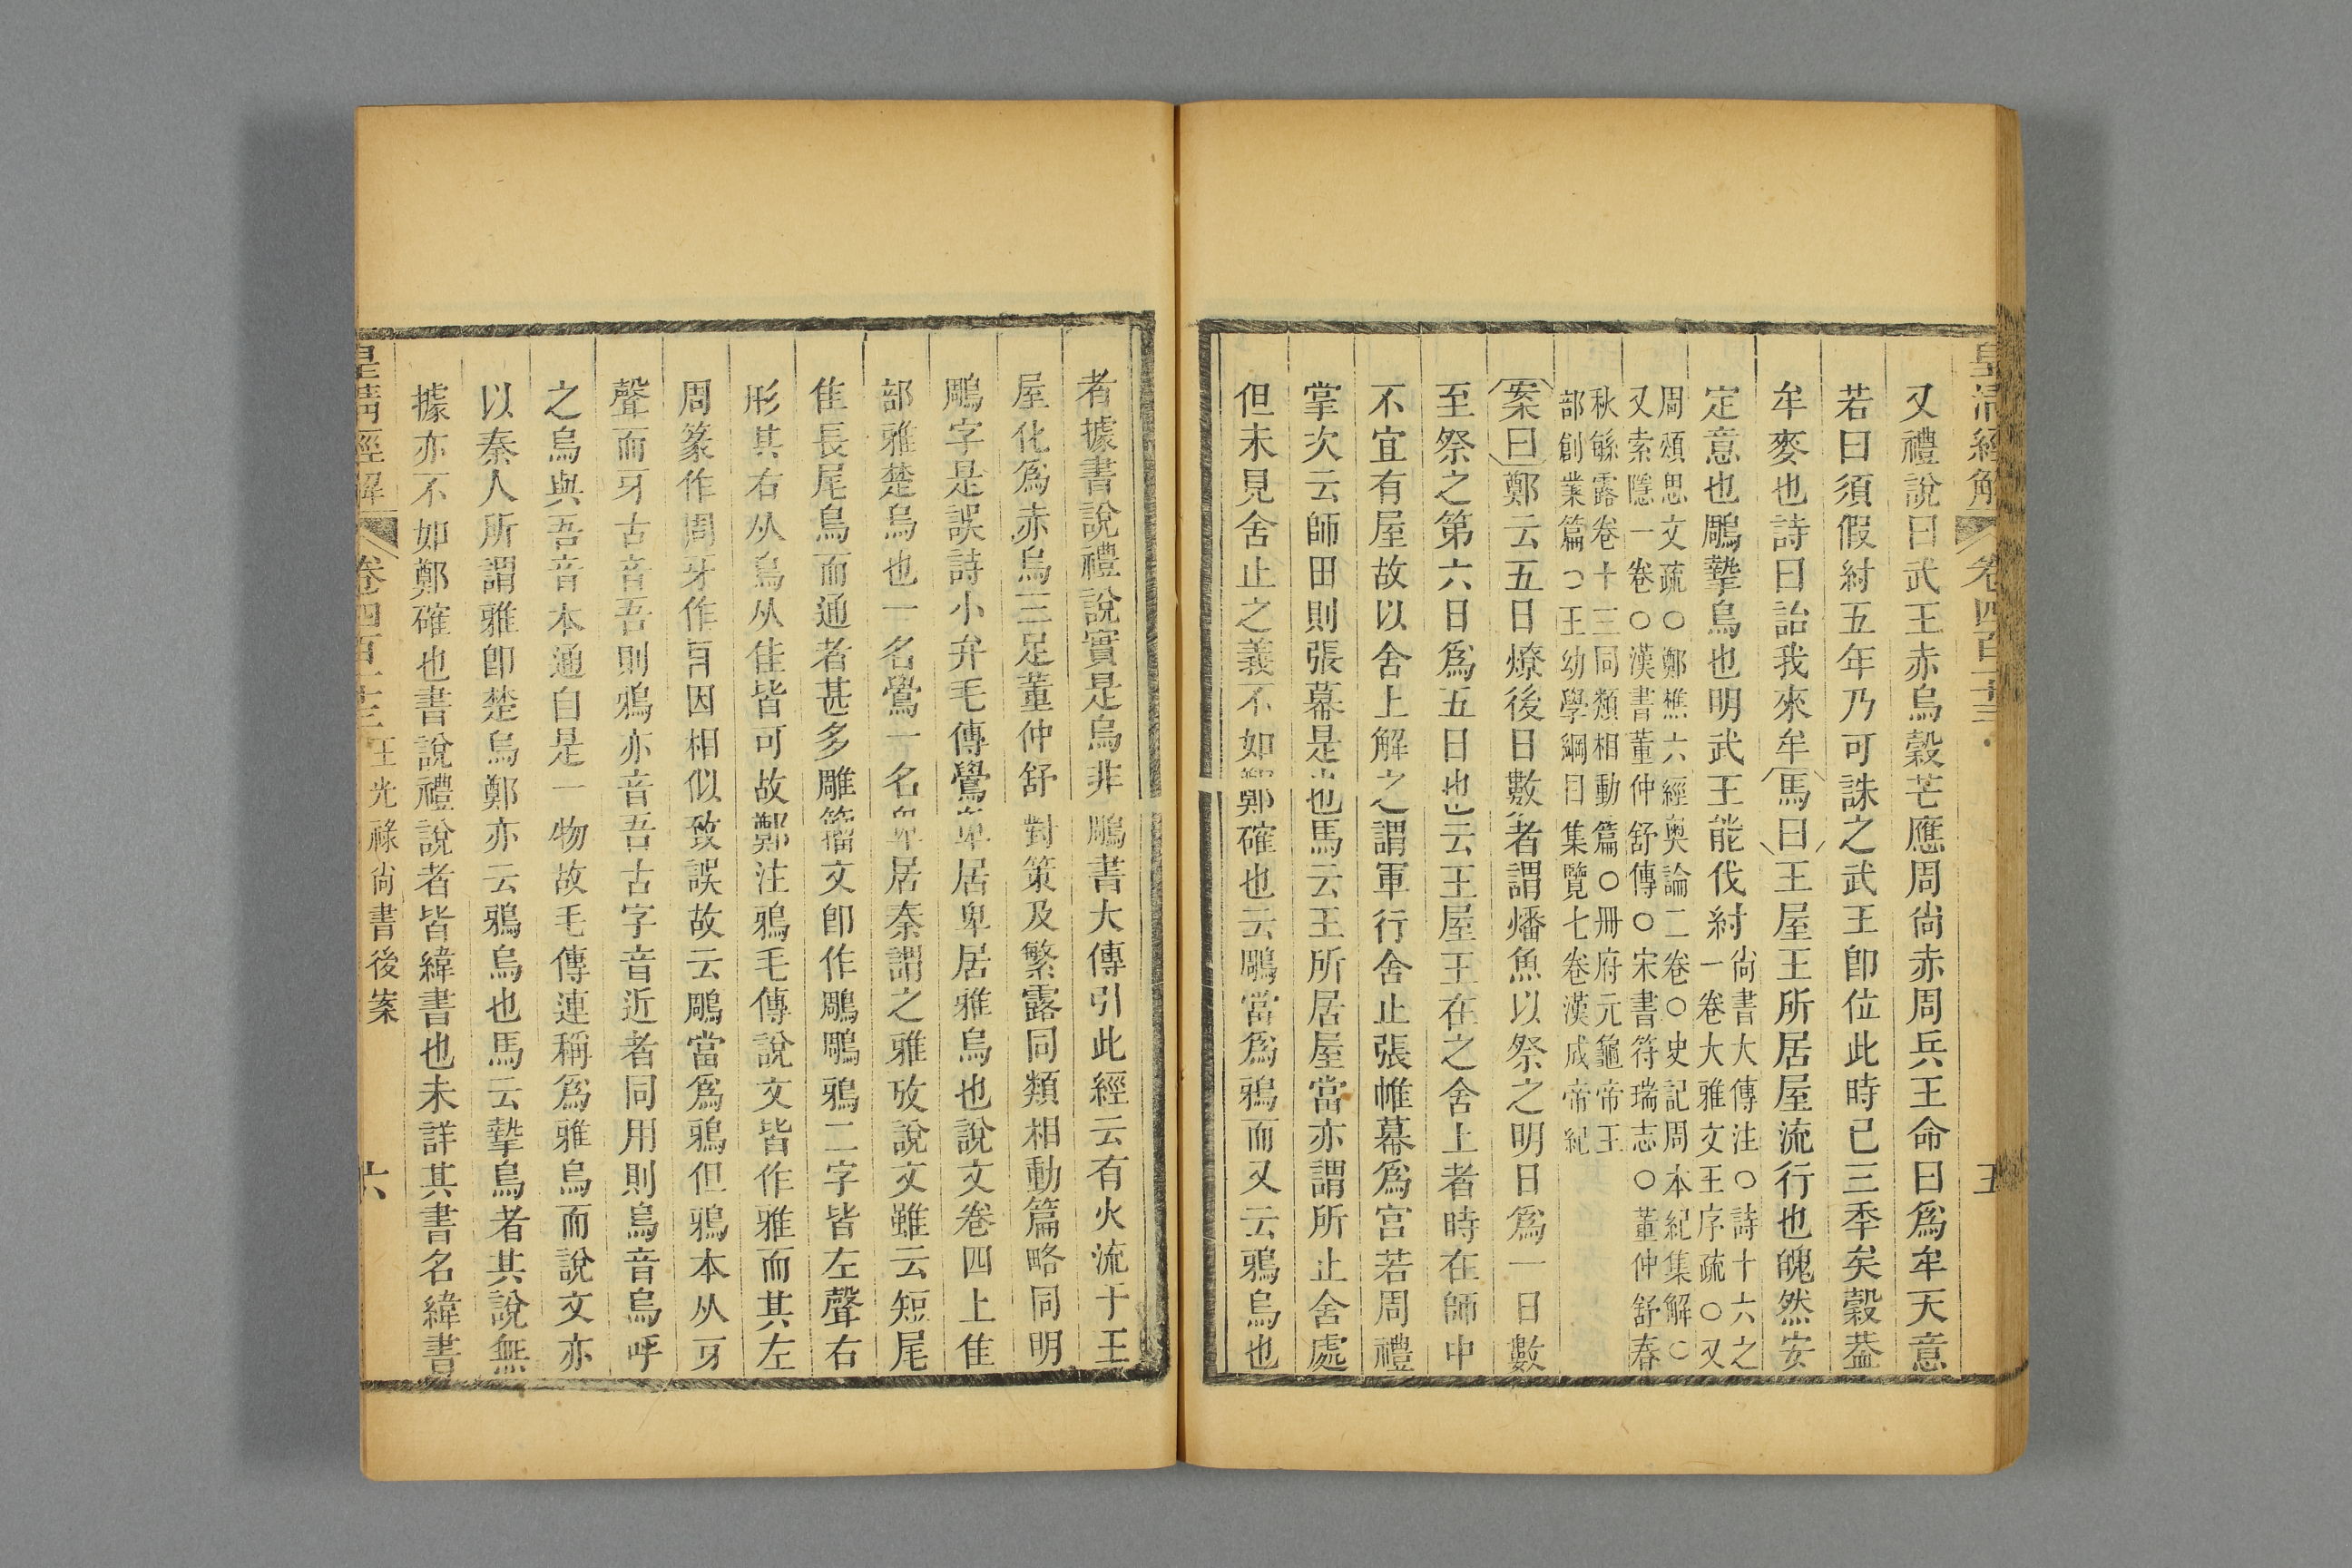 皇清經解
卷四百
五
又禮說曰武王赤烏穀芒應周尙赤周兵王命曰爲牟天意
若曰須假紂五年乃可誅之武王卽位此時已三秊矣穀葢
牟麥也詩曰詒我來牟馬曰王屋王所居屋流行也魄然安
定意也鵰摯鳥也明武王能伐紂尙書大傳注〇詩十六之
一卷大雅文王序疏〇又
周頌思文疏〇鄭樵六經奧論二卷〇史記周本紀集解〇
又索隱一卷〇漢書董仲舒傳〇宋書符瑞志〇董仲舒春
秋繇露卷十三同類相動篇〇冊府元龜帝王
部創業篇〇王幼學綱目集覽七卷漢成帝紀
案曰鄭云五日燎後日數者謂燔魚以祭之明日爲一日數
至祭之第六日爲五日也云王屋王在之舍上者時在師中
不宜有屋故以舍上解之謂軍行舍止張帷幕爲宮若周禮
掌次云師田則張幕是也馬云王所居屋當亦謂所止舍處
但未見舍止之義不如鄭確也云鵰當爲鴉而又云鴉烏也
者據書說禮說實是烏非鵰書大傳引此經云有火流于王
屋化爲赤烏三足董仲舒對策及繁露同類相動篇略同明
鵰字是誤詩小弁毛傳鸒卑居卑居雅烏也說文卷四上隹
部雅楚烏也一名鸒一名卑居秦謂之雅攷說文雖云短尾
隹長尾鳥而通者甚多雕籀文卽作鵰鵰鴉二字皆左聲右
形其右从鳥从隹皆可故鄭注鴉毛傳說文皆作雅而其左
周篆作周牙作㸦因相似致誤故云鵰當爲鴉但鴉本从牙
聲而牙古音吾則鴉亦音吾古字音近者同用則烏音烏呼
之烏與吾音本通自是一物故毛傳連稱爲雅烏而說文亦
以秦人所謂雅卽楚烏鄭亦云鴉烏也馬云摯鳥者其說無
據亦不如鄭確也書說禮說者皆緯書也未詳其書名緯書
皇清經解
卷四百
王光祿尙書後案
六